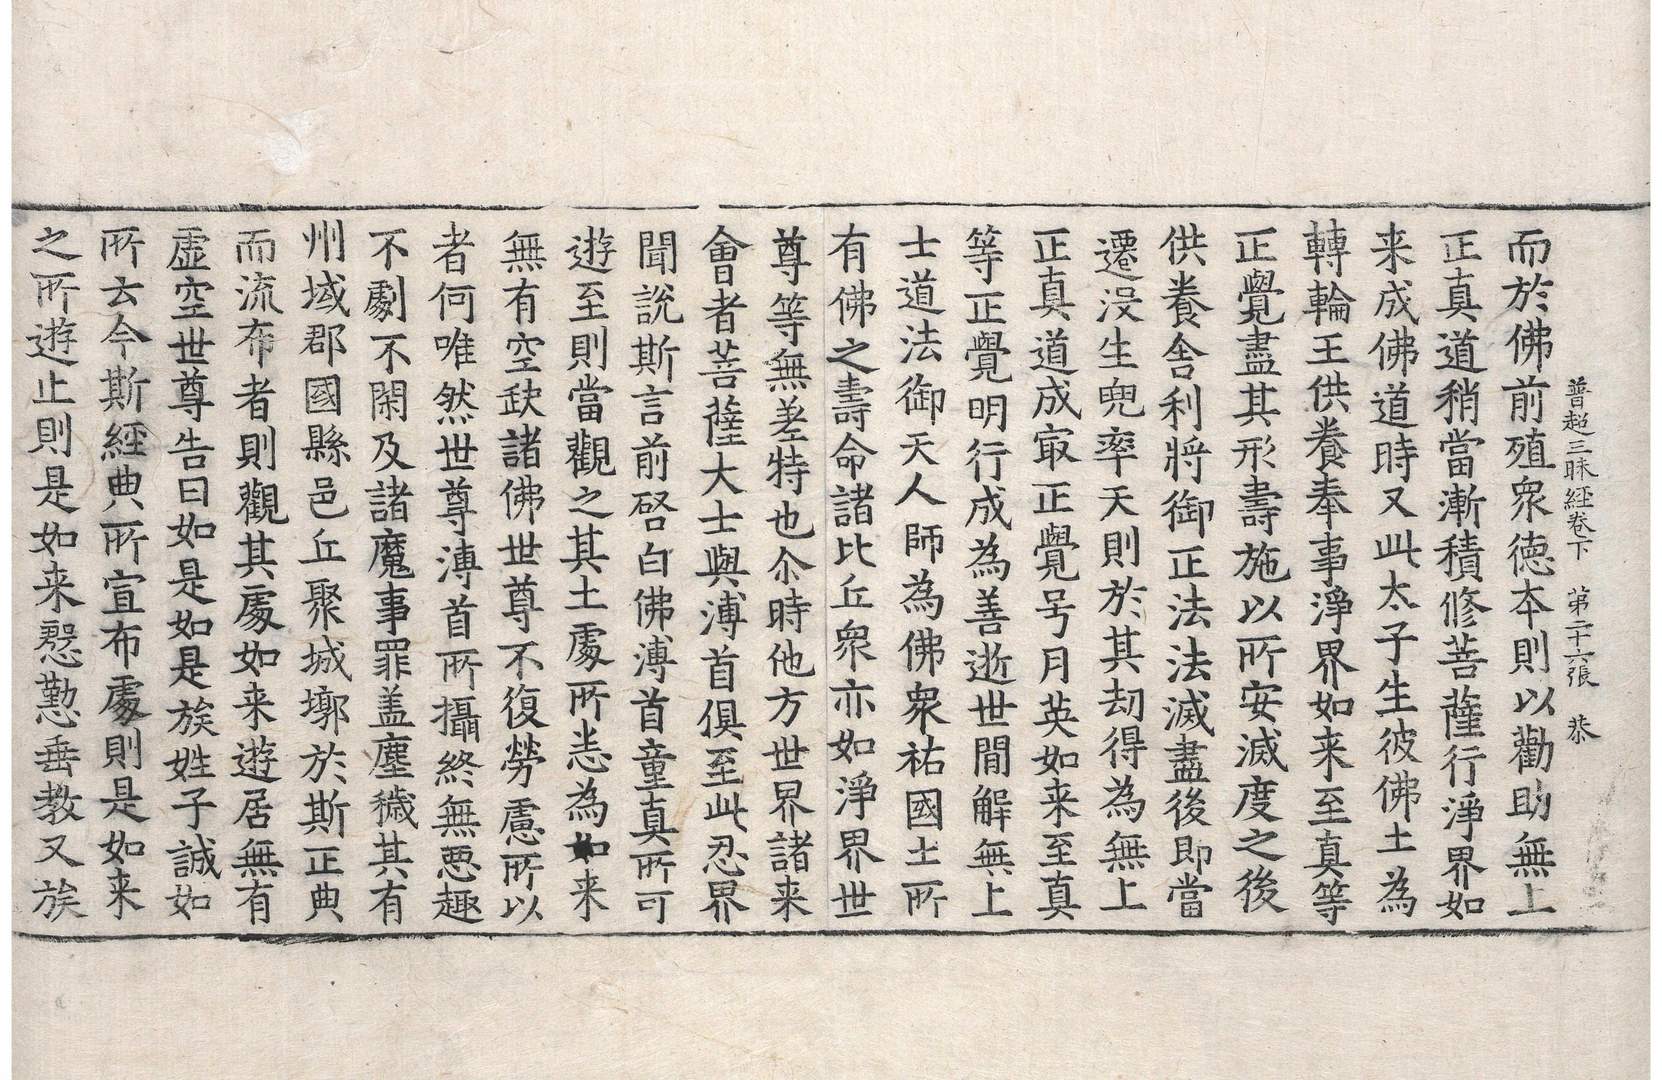 普超三昧経卷下　第二十六張　恭
而於佛前殖衆徳夲則以勸助無上
正真道稍當漸積修菩薩行淨界如
来成佛道時又此太子生彼佛土為
轉輪王供養奉事淨界如来至真等
正覺盡其形壽施以所安滅度之後
供養舎利將御正法法滅盡後即當
遷没生兜率天則於其刧得為無上
正真道成㝡正覺号月英如来至真
等正覺明行成為善逝世閒解無上
士道法御天人師為佛衆祐國土所
有佛之壽命諸比丘衆亦如淨界世
尊等無差特也尒時他方世界諸来
會者菩薩大士與溥首俱至此忍界
聞說斯言前啓白佛溥首童真所可
遊至則當觀之其土處所悉為如来
無有空缺諸佛世尊不復勞慮所以
者何唯然世尊溥首所攝終無惡趣
不劇不閑及諸魔事罪盖塵穢其有
州域郡國縣邑丘聚城墎於斯正典
而流布者則觀其處如来遊居無有
虚空世尊告曰如是如是族姓子誠如
所云今斯經典所宣布處則是如来
之所遊止則是如来慇懃垂教又族